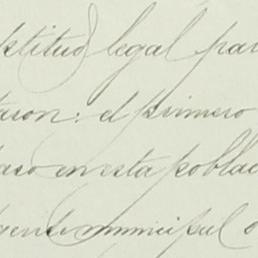 aptitud legal par
taron: el primero
caso en esta poblac
gente municipal o